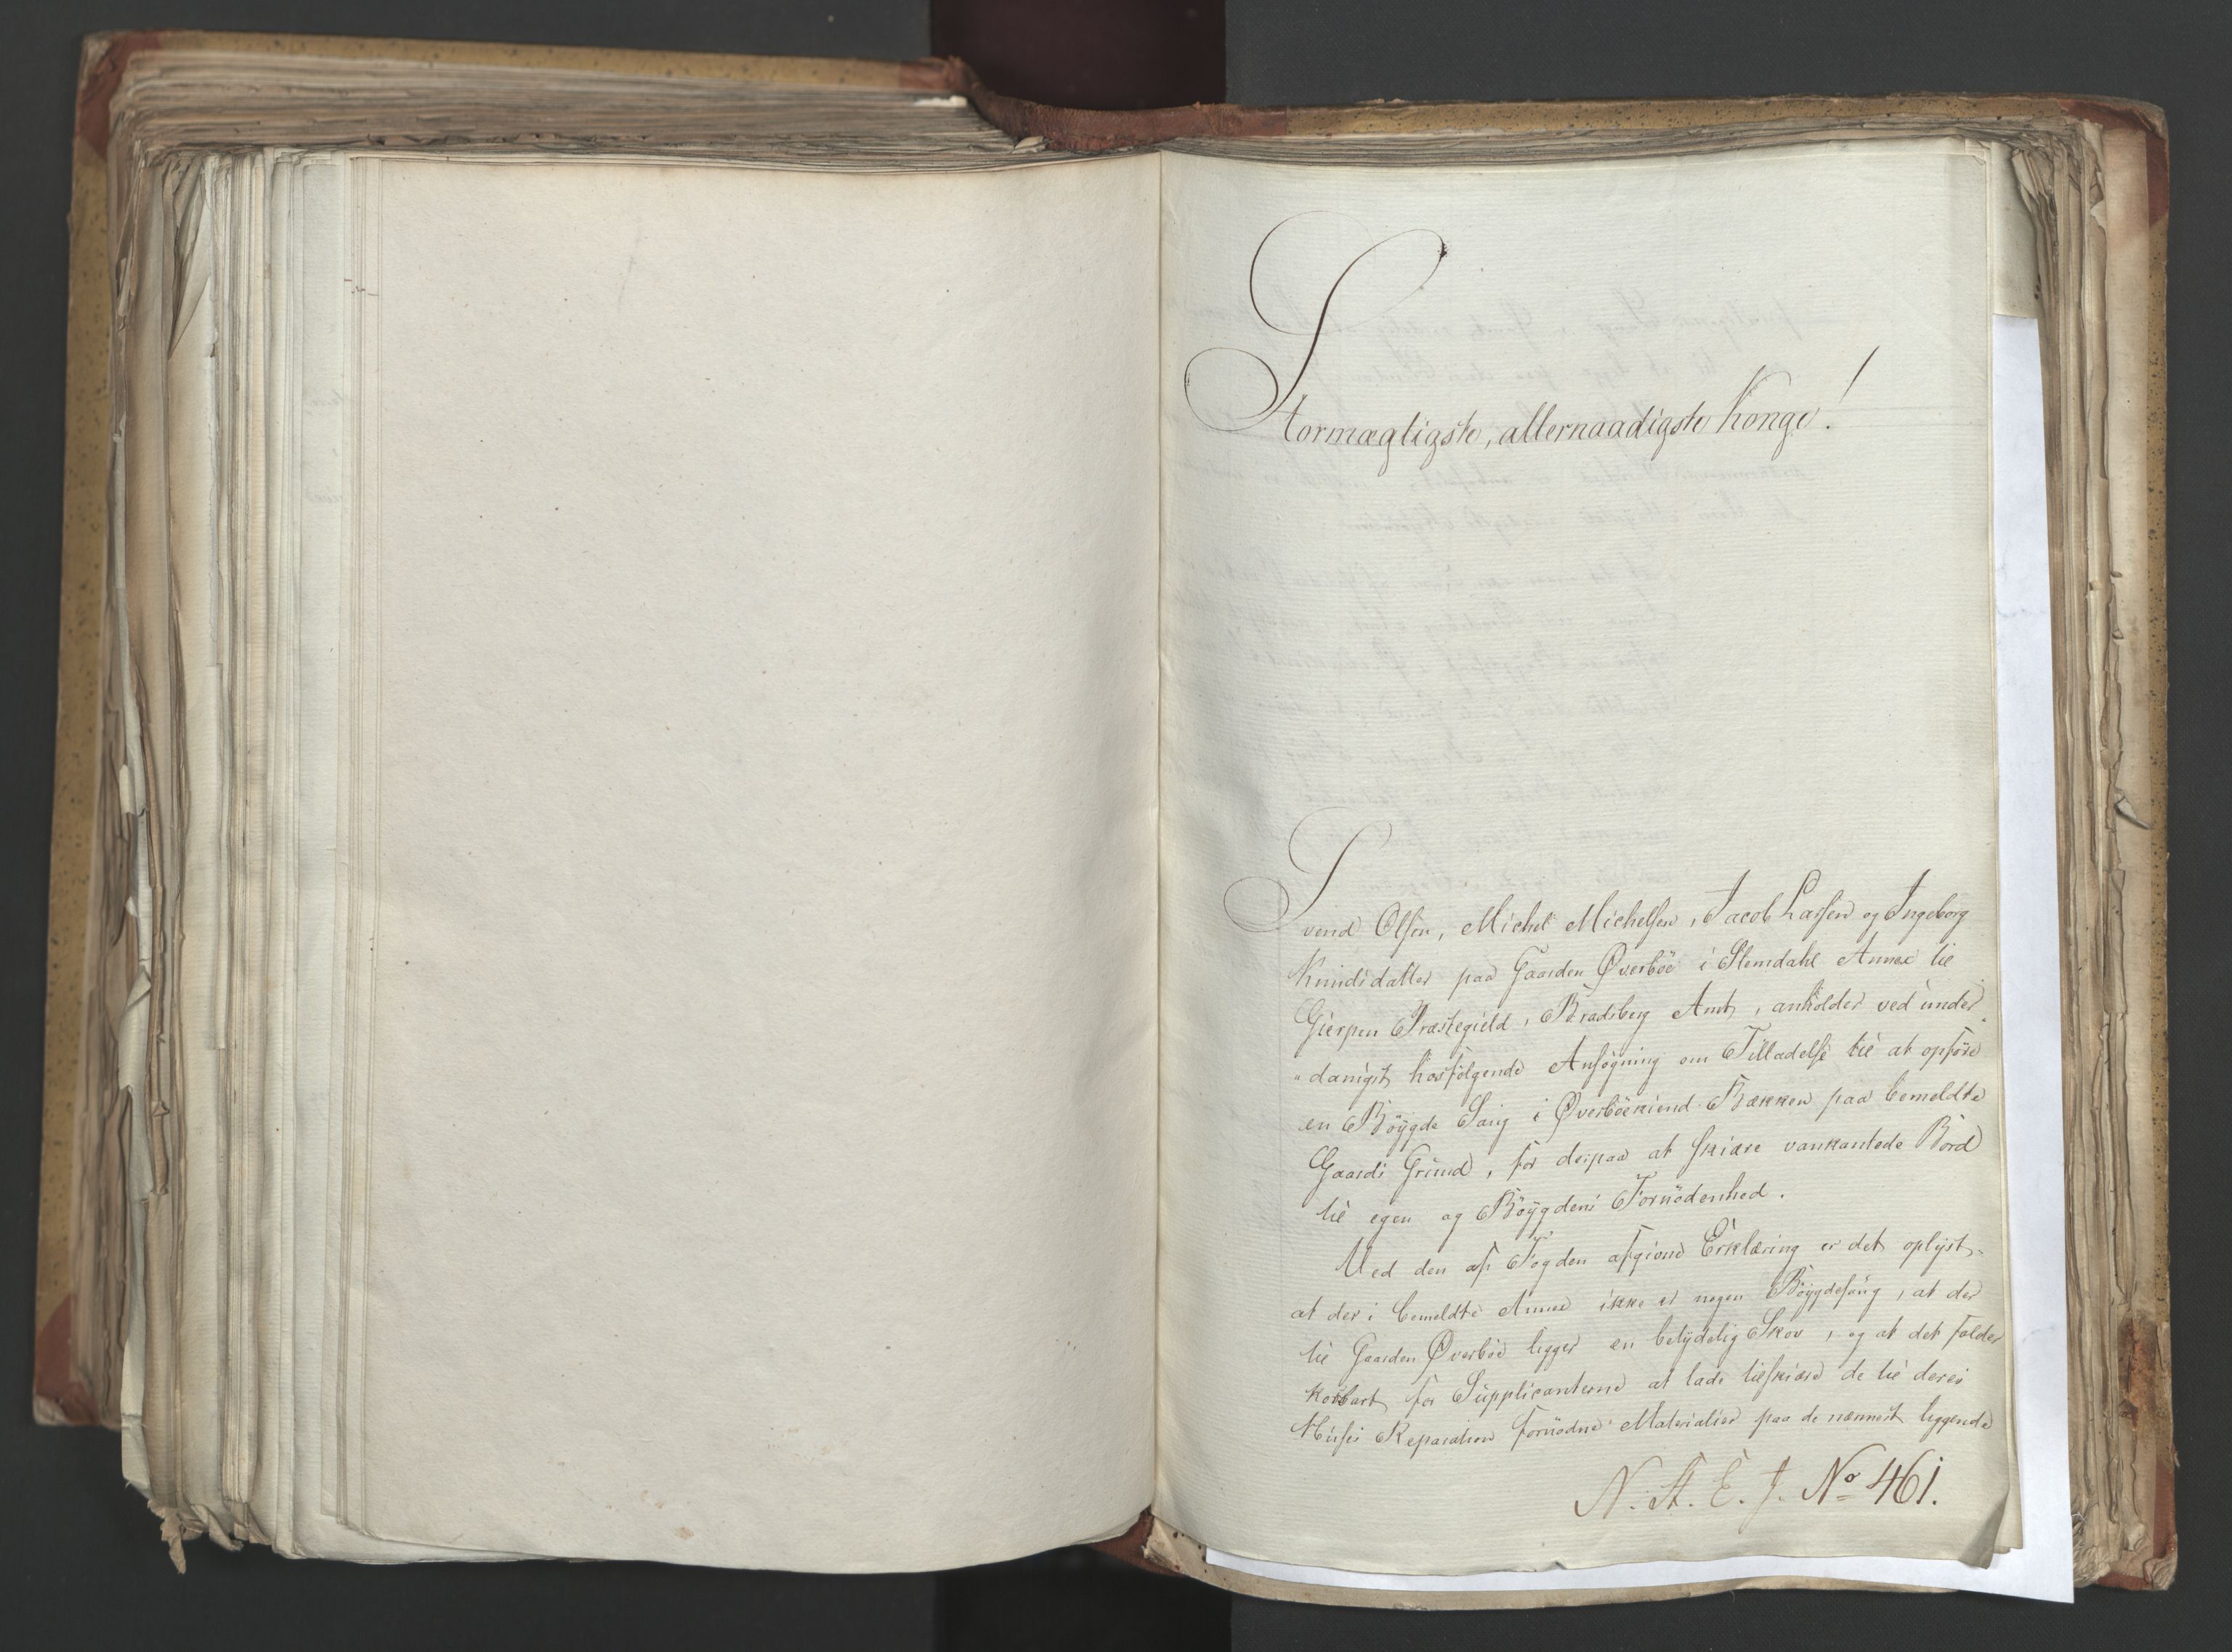 Stormægtigste, allernaadigste Konge!
Svend Olsen, Michel Michelsen, Jacob Larsen og Ingeborg
Knudsdatter paa Gaarden Øverböe i Slemdahl Annex til
Gierpen Præstegield, Bradsberg Amt, anholder ved under-
„danigst hosfølgende Ansøgning om Tilladelse til at opføre
en Böygde Saug i Øverböekiend Bækken paa bemeldte
Gaards Grund, for derpaa at skiære vankantede Bord
til egen og Böygdens Fornödenhed.
Ved den af Fogden afgivne Erklæring er det oplyst,
at der i bemeldte Annex ikke er nogen Böygdesaug, at der
til Gaarden Øverböe ligger en betydelig Skov, og at det falder
kostbart for Supplicanterne at lade tilskiære de til deres
Huses Reparation fornødne Materialier paa de nærmest liggende
N. A. E. J. No 461.